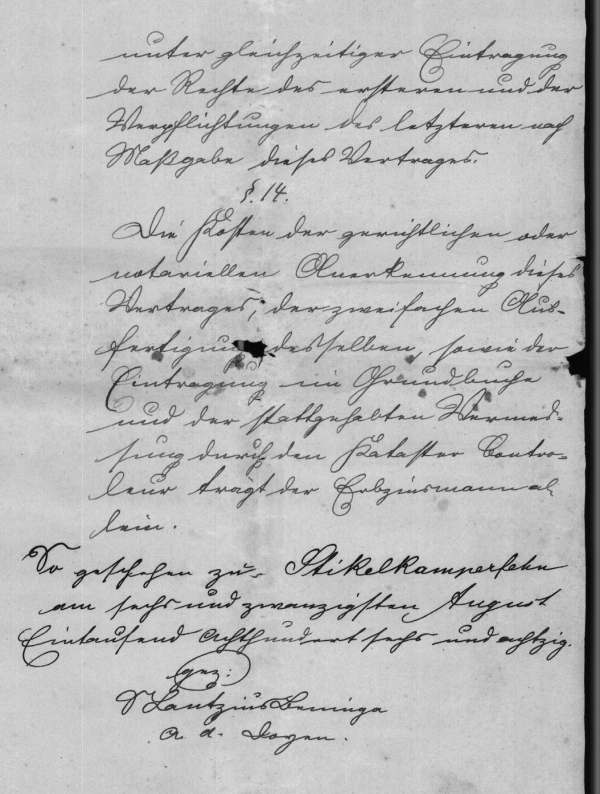 unter gleichzeitiger Eintragung
der Rechte des ersteren und der
Verpflichtungen des letzteren nach
Maßgabe dieses Vertrages.
§. 14.
Die Kosten der gerichtlichen oder
notariellen Anerkennung dieses
Vertrages, der zweifachen Aus-
fertigung desselben, sowie der
Eintragung im Grundbuche
und der stattgehabten Vermes-
sung durch den Kataster Contro-
leur trägt der Erbzinsmann al-
lein.
So geschehen zu Stikelkamperfehn
am sechs und zwanzigsten August
Eintausend achthundert sechs und achtzig.
gez:
Lantzius Beninga
A. d.